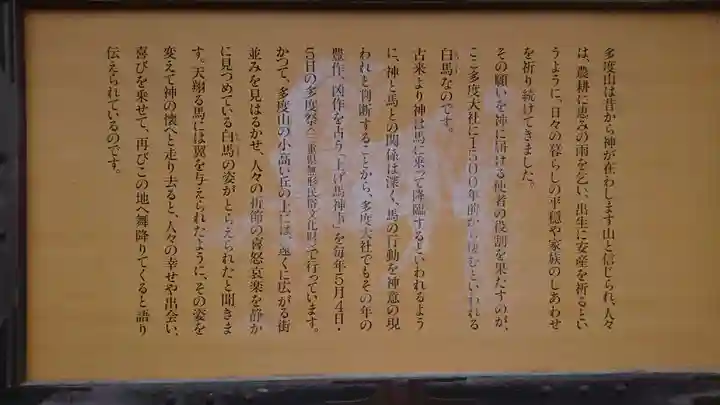 多度山は昔から神が在わします山と信じられ、人々
は、農耕に恵みの雨を乞い、出生に安産を祈るとい
うように、日々の暮らしの平穏や家族のしあわせ
を祈り続けてきました。
その願いを神に届ける使者の役割を果たすのが、
ここ多度大社に1500年前から棲むといわれる
白馬なのです。
古来より神は馬に乗って降臨するといわれるよう
に、神と馬との関係は深く、馬の行動を神意の現
われと判断することから、多度大社でもその年の
豊作、凶作を占う「上げ馬神事」を毎年5月4日・
5日の多度祭(三重県無形民俗文化財)で行っています。
かつて、多度山の小高い丘の上には、遠くに広がる街
並みを見はるかせ、人々の折節の喜怒哀楽を静か
に見つめている白馬の姿がとらえられたと聞きま
す。天翔る馬には翼を与えられたように、その姿を
変えて神の懐へと走り去ると、人々の幸せや出会い、
喜びを乗せて、再びこの地へ舞降りてくると語り
伝えられているのです。